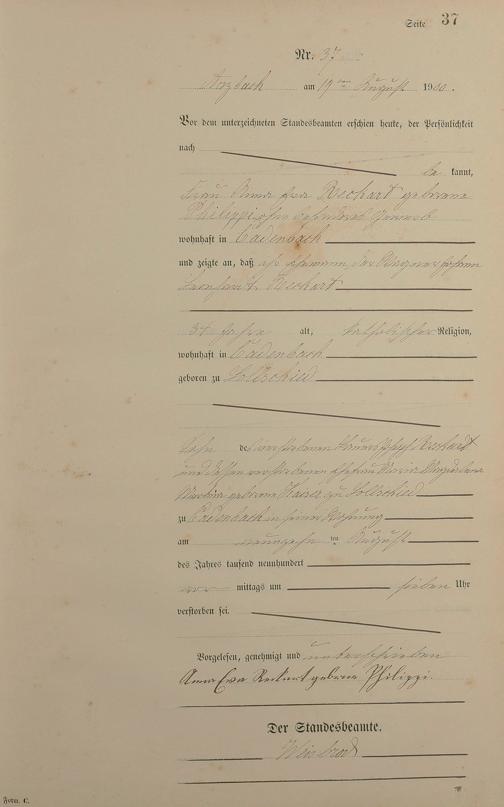 Seite 37
Nr. 37
Arzbach am 19ten August 1900.
Vor dem unterzeichneten Standesbeamten erschien heute, der Persönlichkeit
nach
be kannt,
Frau Anna Eva Reckart geborene
Philippi ohne besonderes Gewerbe
wohnhaft in Cadenbach
und zeigte an, daß ihr Ehemann, der
Leonhard Reckart
37 Jahre alt, katholischer Religion,
wohnhaft in Cadenbach
geboren zu Sollschied
Sohn des verstorbenen Reckart
und dessen verstorbenen Ehefrau
geborene Kaiser zu Sollschied
zu Cadenbach in seiner Wohnung
am neunzehnten August
des Jahres tausend neunhundert
vor mittags um sieben Uhr
verstorben sei.
Vorgelesen, genehmigt und unterschrieben
Anna Eva Reckart geborene Philippi.
Der Standesbeamte.
Form. C.